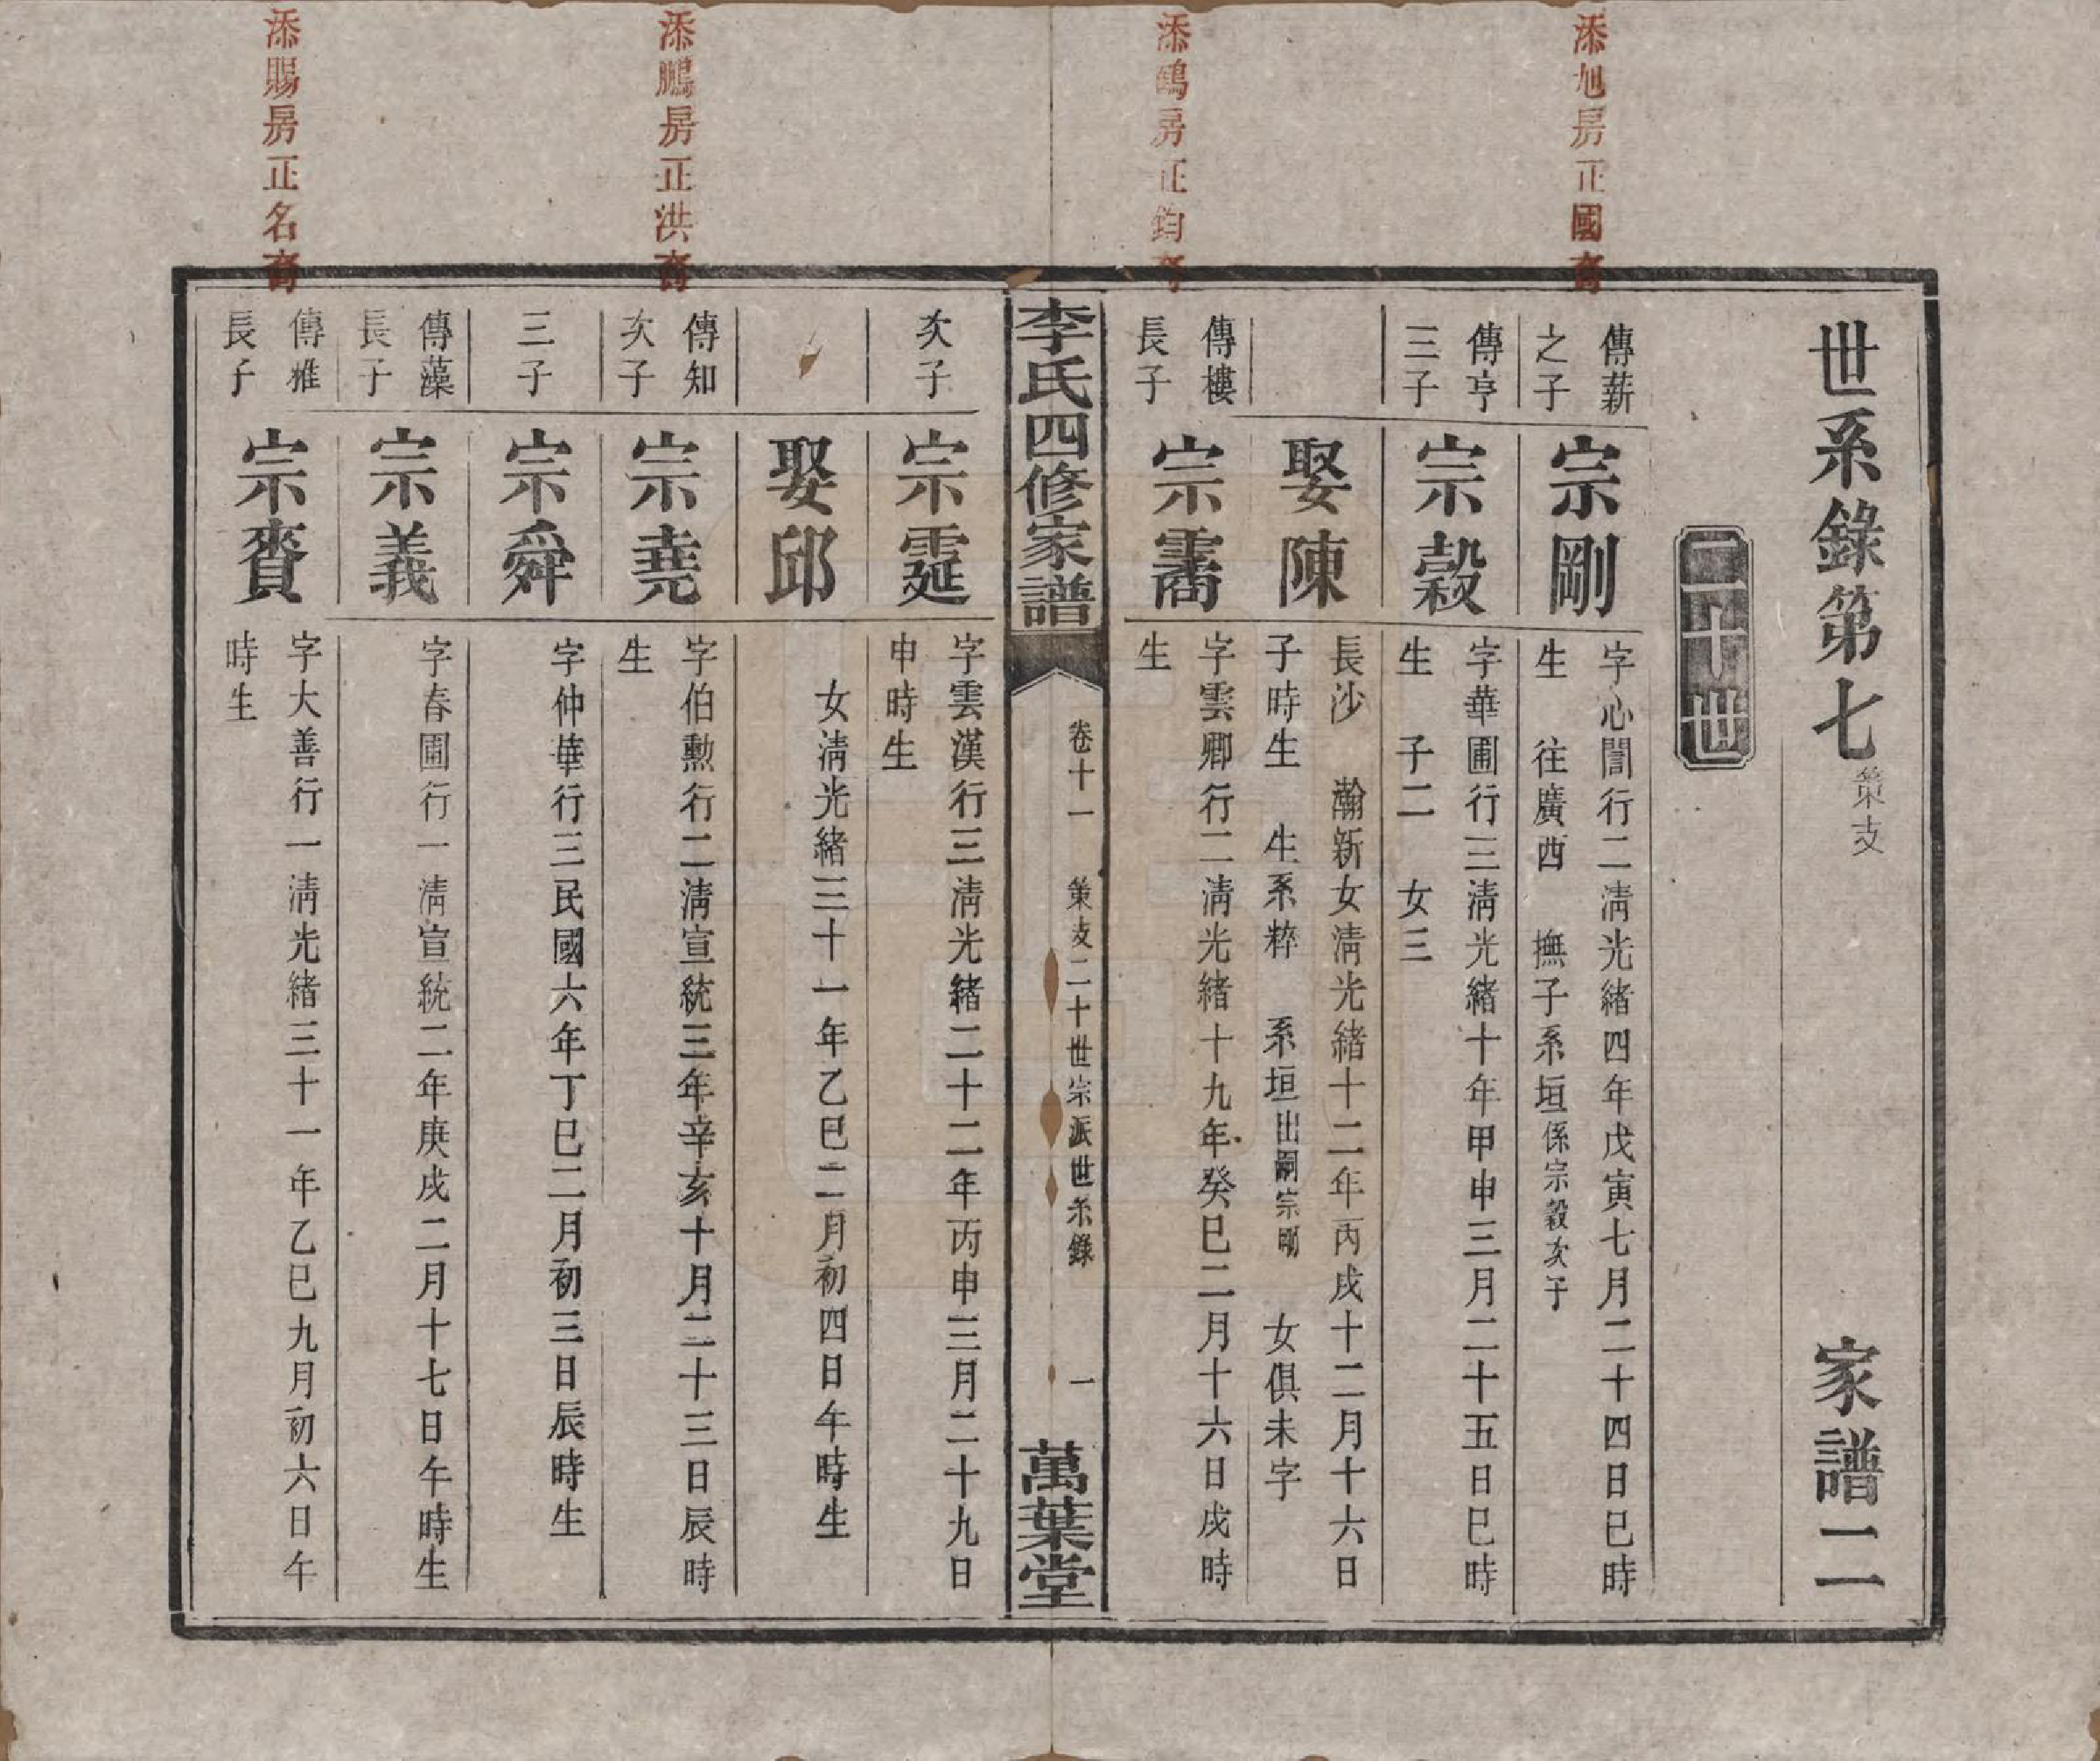 世系錄第七 策支 家譜二
二十世
添旭房正國裔
傳薪之子
宗剛
字心誾行二淸光緒四年戊寅七月二十四日巳時
生 往廣西 撫子系垣係宗穀次子
傳亨三子
宗穀
字華圃行三淸光緒十年甲申三月二十五日巳時
生 子二 女三
娶陳
長沙 瀚新女淸光緒十二年丙戌十二月十六日
子時生 生系粹 系垣出嗣宗剛 女俱未字
添鷗房正鈞裔
傳樓長子
宗霱
字雲卿行二淸光緒十九年癸巳二月十六日戌時
生
李氏四修家譜
卷十一 策支二十世宗派世系錄 一
萬葉堂
次子
宗霆
字雲漢行三淸光緒二十二年丙申三月二十九日
申時生
娶邱
女淸光緒三十一年乙巳二月初四日午時生
添鵬房正洪裔
傳知次子
宗堯
字伯勲行二淸宣統三年辛亥十月二十三日辰時
生
三子
宗舜
字仲華行三民國六年丁巳二月初三日辰時生
傳藻長子
宗義
字春圃行一淸宣統二年庚戌二月十七日午時生
添賜房正名裔
傳雅長子
宗賚
字大善行一淸光緒三十一年乙巳九月初六日午
時生